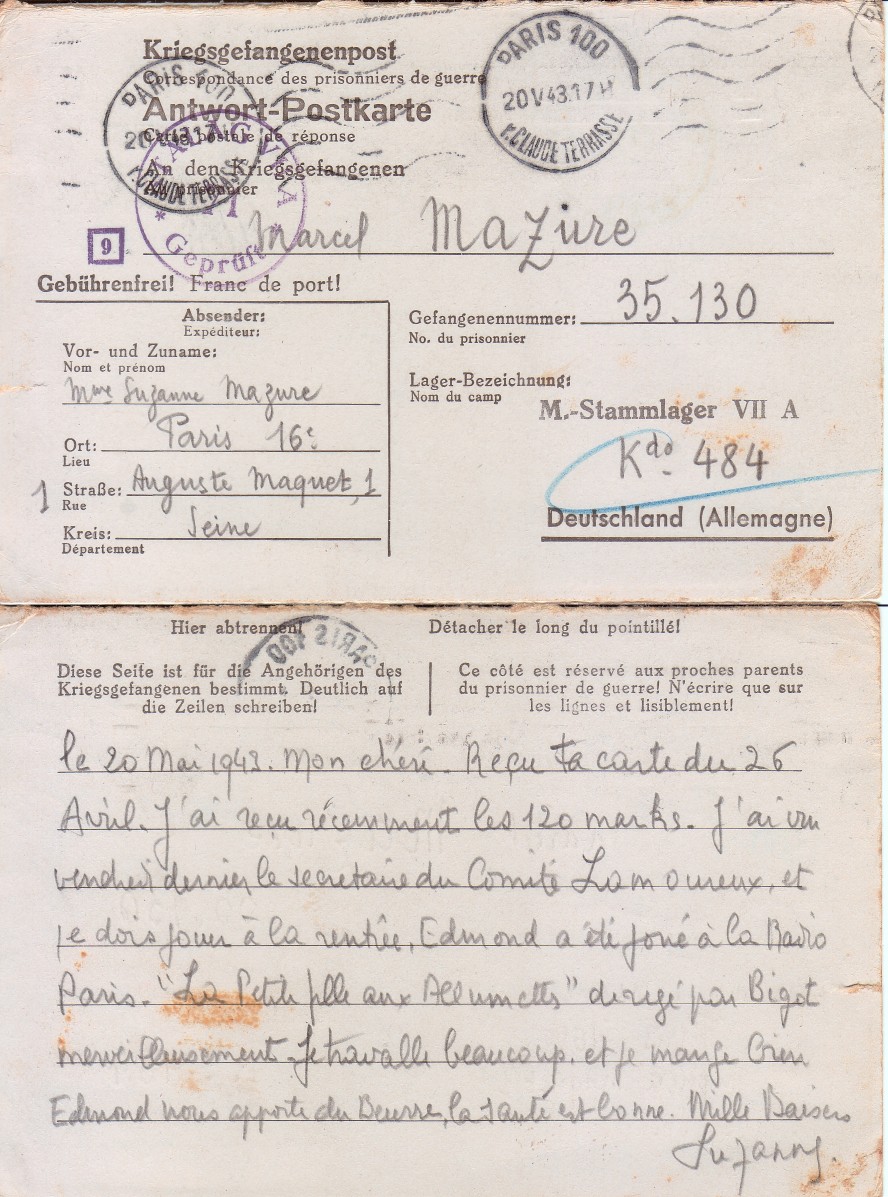 Kriegsgefangenenpost
Correspondance des prisonniers de guerre
PARIS 100
20 V 43.17H
R. CLAUDE TERRASSE
PARIS 100
R. CLAUDE TERRASSE
Antwort-Postkarte
Carte postale de réponse
An den Kriegsgefangenen
Au prisonnier
STALAG VII A
Geprüft
Marcel Mazure
9
Gebührenfrei! Franc de port!
Absender:
Expéditeur:
Vor- und Zuname:
Nom et prénom
Mme Suzanne Mazure
Ort: Paris 16e
Lieu
1 Straße: Auguste Maquet, 1
Rue
Kreis: Seine
Département
Gefangenennummer: 35.130
No. du prisonnier
Lager-Bezeichnung:
Nom du camp
M.-Stammlager VII A
Kdo. 484
Deutschland (Allemagne)
Hier abtrennen! Détacher le long du pointillé!
PARIS 100
Diese Seite ist für die Angehörigen des
Kriegsgefangenen bestimmt. Deutlich auf
die Zeilen schreiben!
Ce côté est réservé aux proches parents
du prisonnier de guerre! N'écrire que sur
les lignes et lisiblement!
le 20 Mai 1943. Mon chéri. Reçu ta carte du 26
Avril. J'ai reçu récemment les 120 marks. J'ai vu
vendredi dernier, le secretaire du Comité Lamoureux, et
je dois jouer à la rentrée, Edmond a été joué à la Radio
Paris. "La Petite fille aux Allumettes" dirigé par Bigot
merveilleusement. Je travaille beaucoup. et je mange bien
Edmond nous apporte du Beurre, la santé est bonne. Mille Baisers
Suzanne.